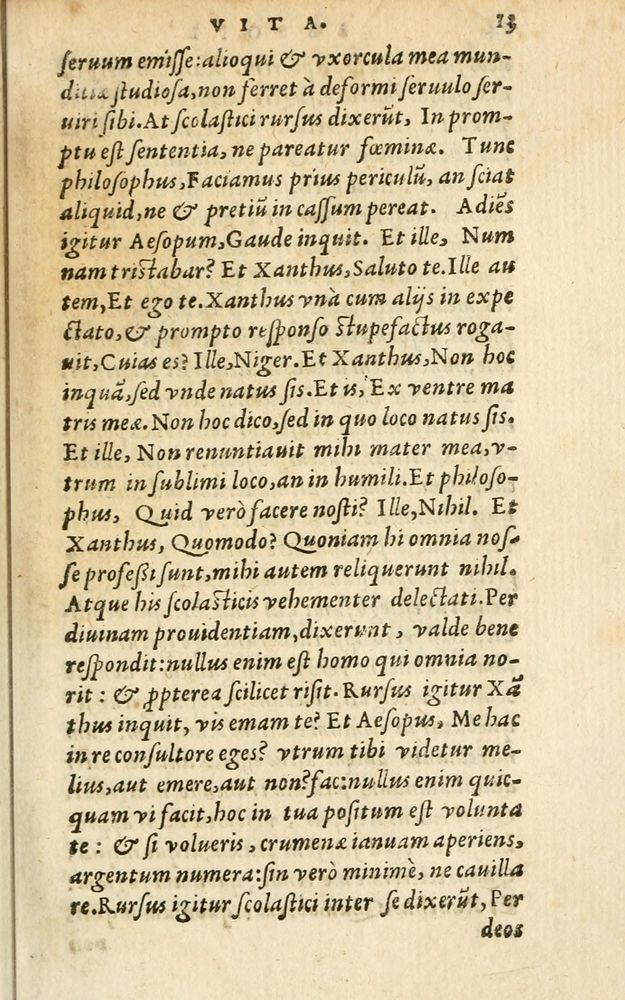 VITA. 13
ſeruum emiſſe:alioqui & vxorcula mea mun-
ditiæ ſtudioſa,non ferret à deformi ſeruulo ſer-
uiri ſibi.At ſcolaſtici rurſus dixerūt, In prom-
ptu eſt ſententia, ne pareatur fœminæ. Tunc
philoſophus,Faciamus prius periculū, an ſciat
aliquid,ne & pretiū in caſſum pereat. Adiēs
igitur Aeſopum,Gaude inquit. Et ille, Num
nam triſtabar? Et Xanthus,Saluto te.Ille au
tem,Et ego te.Xanthus vnà cum alijs in expe
ctato,& prompto reſponſo ſtupefactus roga-
uit,Cuias es? Ille,Niger.Et Xanthus,Non hoc
inquā,ſed vnde natus ſis.Et is, Ex ventre ma
tris meæ.Non hoc dico,ſed in quo loco natus ſis.
Et ille, Non renuntiauit mihi mater mea,v-
trum in ſublimi loco,an in humili.Et philoſo-
phus, Quid verò facere noſti? Ille,Nihil. Et
Xanthus, Quomodo? Quoniam hi omnia noſ-
ſe profeßi ſunt,mihi autem reliquerunt nihil.
Atque his ſcolaſticis vehementer delectati.Per
diuinam prouidentiam,dixerunt, valde bene
reſpondit:nullus enim eſt homo qui omnia no-
rit: & ꝓpterea ſcilicet riſit.Rurſus igitur Xā
thus inquit, vis emam te? Et Aeſopus, Me hac
in re conſultore eges? vtrum tibi videtur me-
lius,aut emere,aut non?fac:nullus enim quic-
quam vi facit,hoc in tua poſitum eſt volunta
te: & ſi volueris, crumenæ ianuam aperiens,
argentum numera:ſin verò minimè, ne cauilla
re.Rurſus igitur ſcolaſtici inter ſe dixerūt,Per
deos